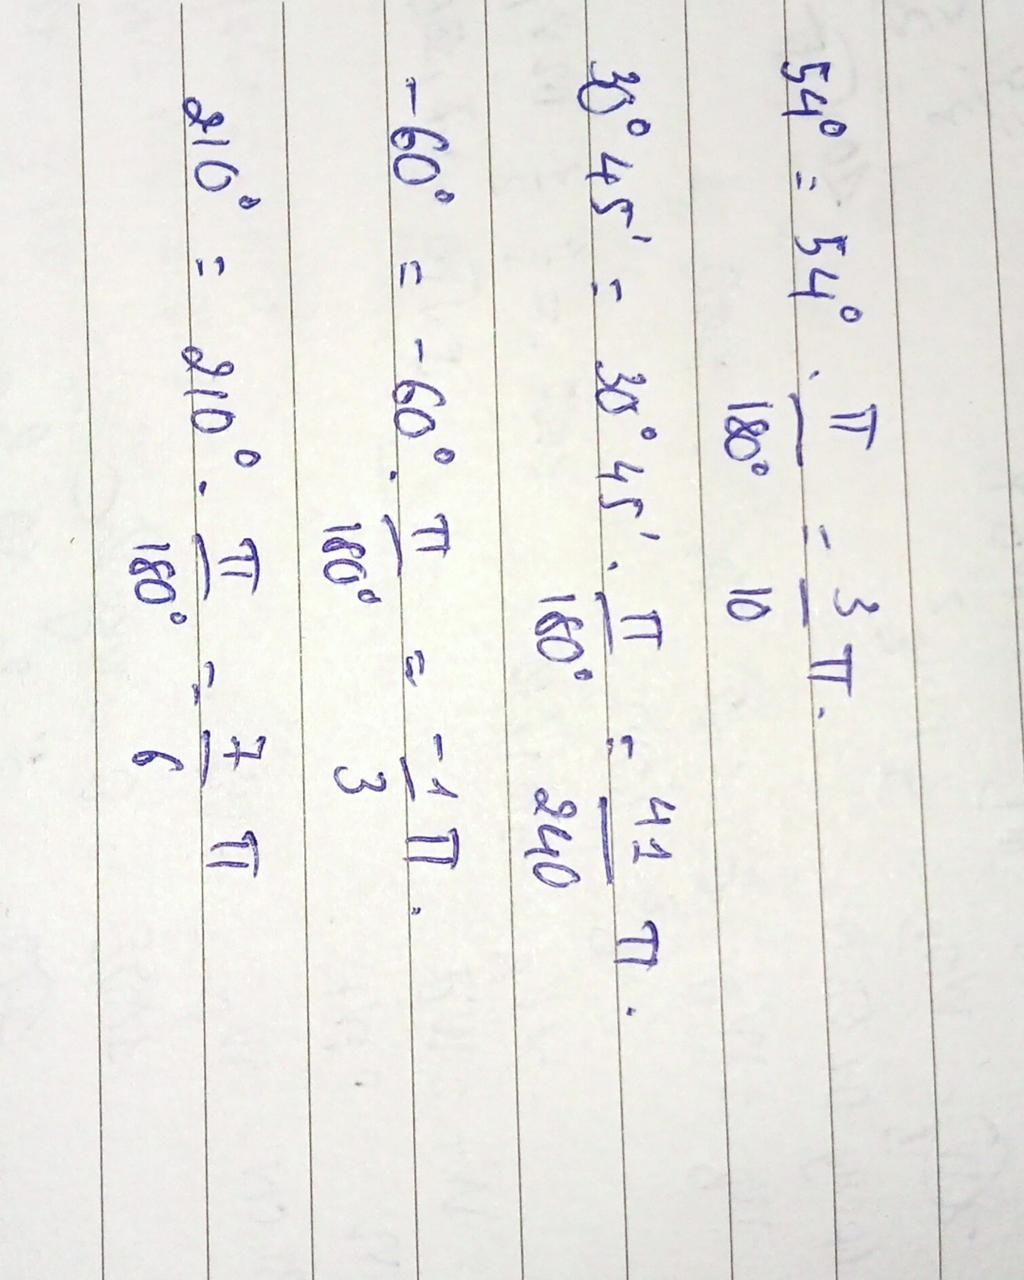 54° = 54° . π/180° = 3/10 π.
30° 45' = 30° 45' . π/180° = 41/240 π.
-60° = -60° . π/180° = -1/3 π.
210° = 210° . π/180° = 7/6 π